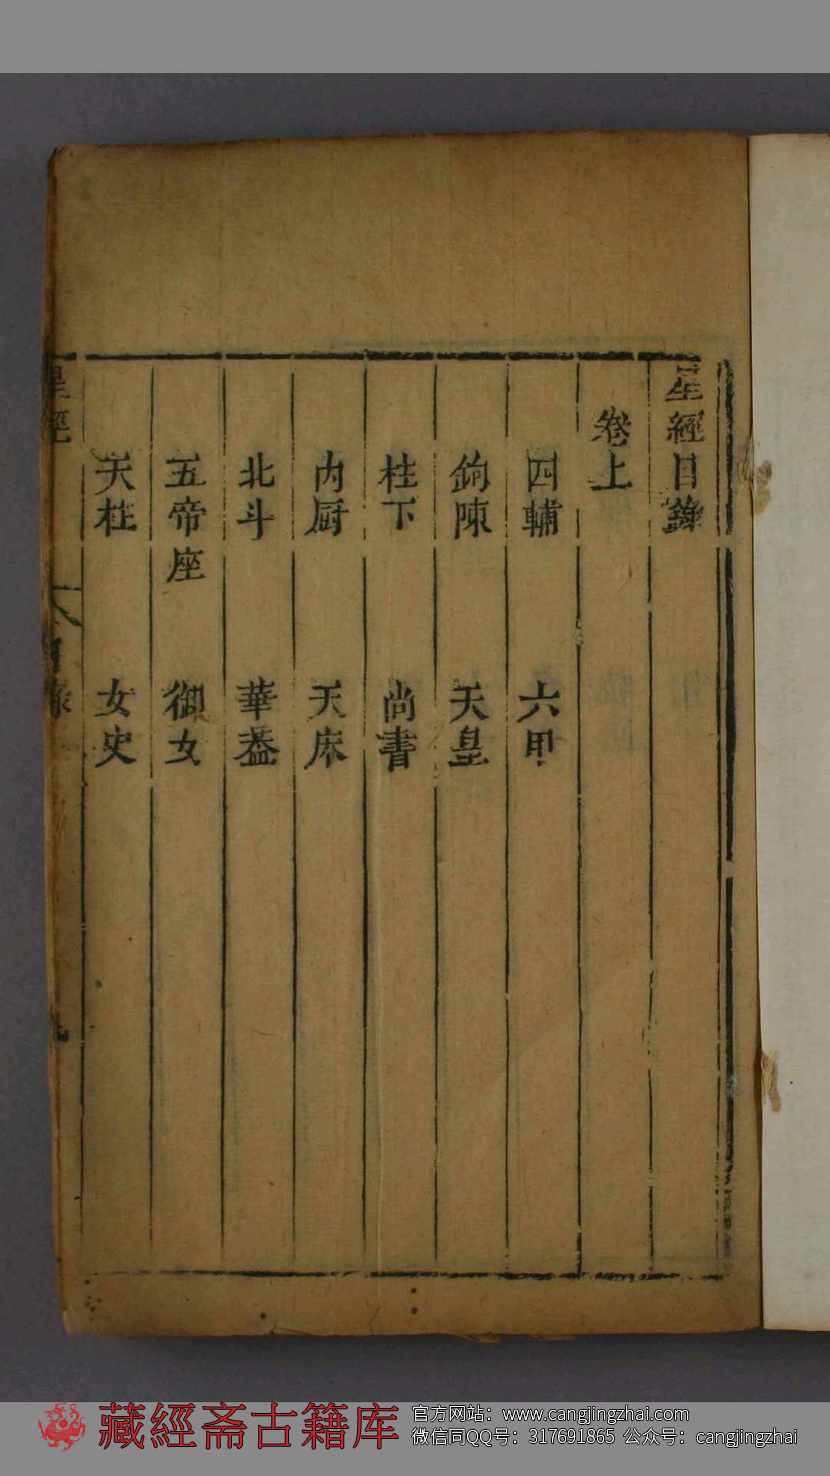 星經目錄
卷上
四輔 六甲
鉤陳 天皇
柱下 尚書
内厨 天床
北斗 華蓋
五帝座 御女
天柱 女史
星經
目錄
藏經斋古籍库
官方网站：www.cangjingzhai.com
微信同QQ号：317691865 公众号：cangjingzhai